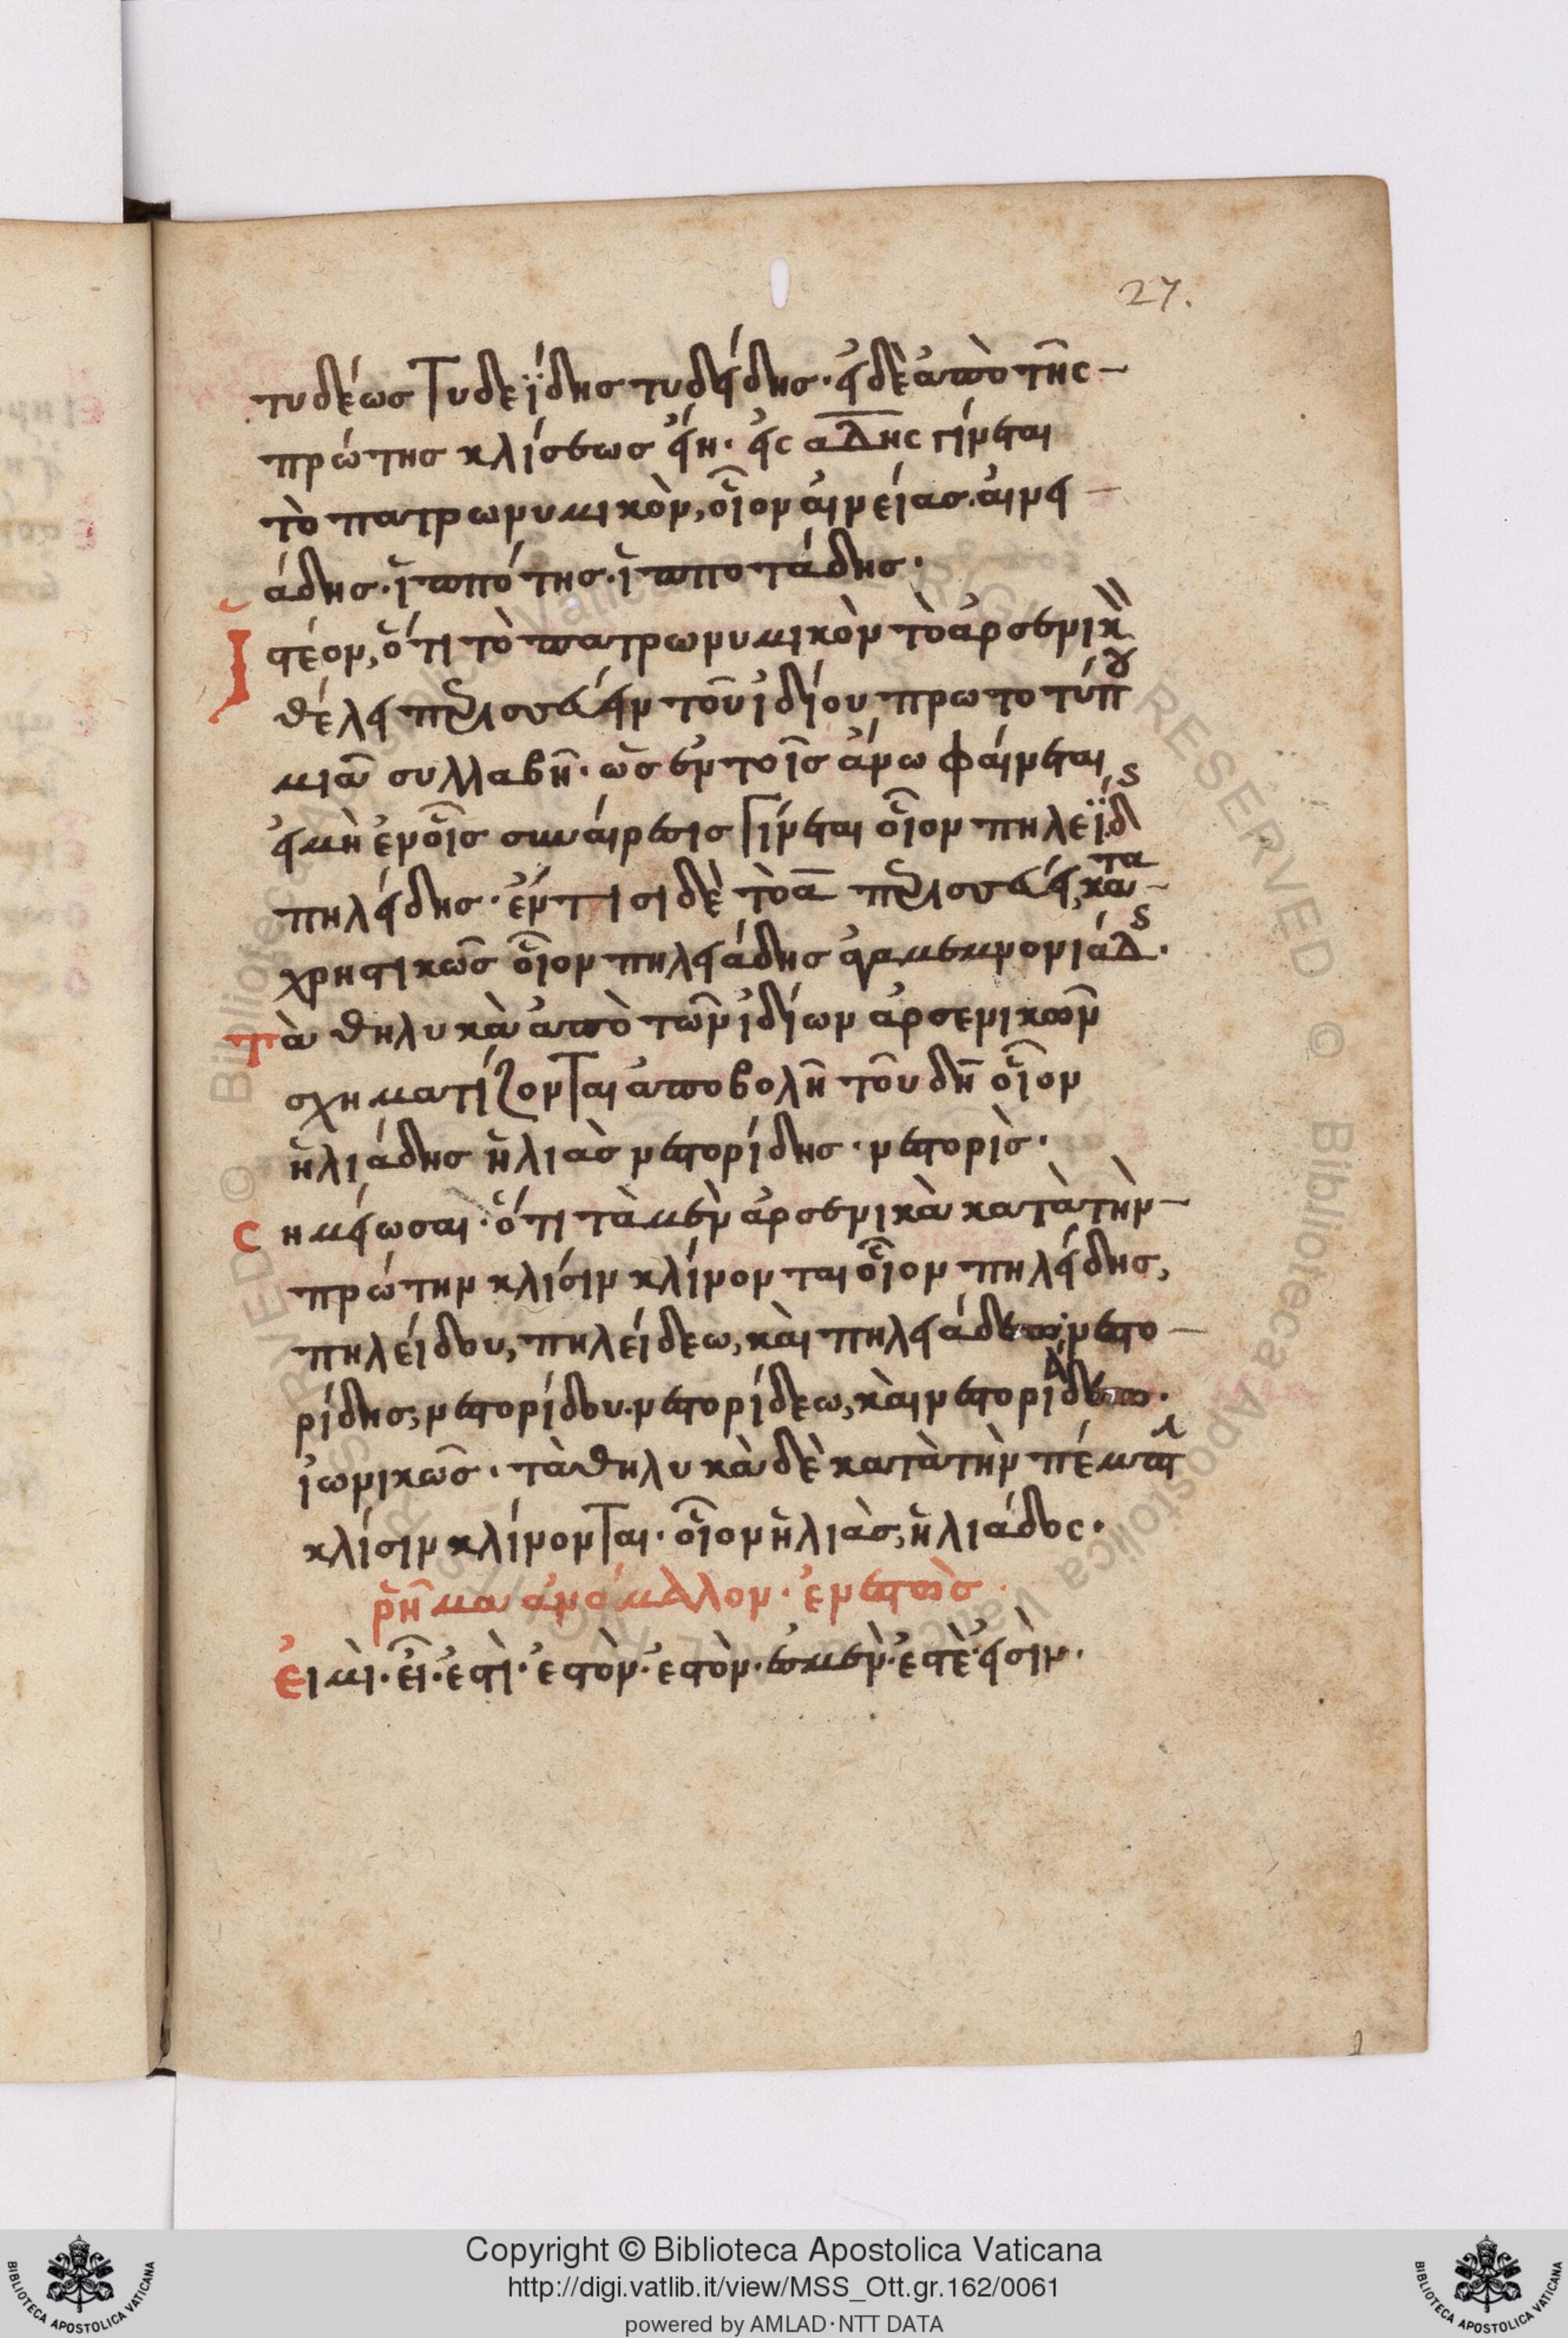 27.
τυδέως Τυδεΐδης τυδείδης· εἰ δὲ ἀπὸ τῆς
πρώτης κλίσεως εἴη· εἰς αδης γίνεται
τὸ πατρωνυμικὸν, οἷον αἰνείας· αἰνει
άδης· ἱππότης· ἱπποτάδης·
Ἰστέον, ὅτι τὸ πατρωνυμικὸν τὸ ἀρσενικ
θέλει τοῦ ἰδίου πρωτοτύπου
μιᾶ συλλαβῆ· ὡς ἐν τοῖς ἄνω φαίνεται
εἰ μὴ ἐν οἷς συναίρεσις Γίνεται οἷον πηλεΐδ
πηλείδης· ἔν τισι δὲ κατα
χρηστικῶς οἷον πηλειάδης ἀγαμεμνονιάδ·
Τὰ θηλυκὰ ἀπὸ τῶν ἰδίων ἀρσενικῶν
σχηματίζονται ἀποβολῆ τοῦ δῆ οἷον
ἡλιάδης ἡλιὰς νεστορίδης· νεστορὶς·
Σημείωσαι· ὅτι τὰ μὲν ἀρσενικὰ κατὰ τὴν
πρώτην κλίσιν κλίνονται οἷον πηλείδης,
πηλείδου, πηλείδεω, καὶ πηλειάδεω· νεστο
ρίδης, νεστορίδου· νεστορίδεω, καὶ νεστοριάδεω·
ἰωνικῶς· τὰ θηλυκὰ δὲ κατὰ τὴν πέμπτην
κλίσιν κλίνονται· οἷον ἡλιὰς, ἡλιάδος·
ῥῆμα ἀνόμαλον· ἐνεστὼς·
Εἰμὶ· εἶ· ἐστὶ· ἐστὸν· ἐστὸν· ἐσμὲν· ἐστὲ· εἰσὶν·
Copyright © Biblioteca Apostolica Vaticana
http://digi.vatlib.it/view/MSS_Ott.gr.162/0061
powered by AMLAD·NTT DATA
BIBLIOTECA APOSTOLICA VATICANA
BIBLIOTECA APOSTOLICA VATICANA